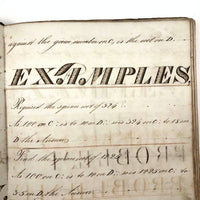 against the given number on C, is the root on D.
EXAMPLES
Required the square root of 324
As 100 on C: is to 10 on D:: so is 324 on C: to 18 on
D, the Answer.
Find the square root of 1225
As 100 on C: is to 10 on D:: so is 1225 on C: to
35 on D, the Answer.